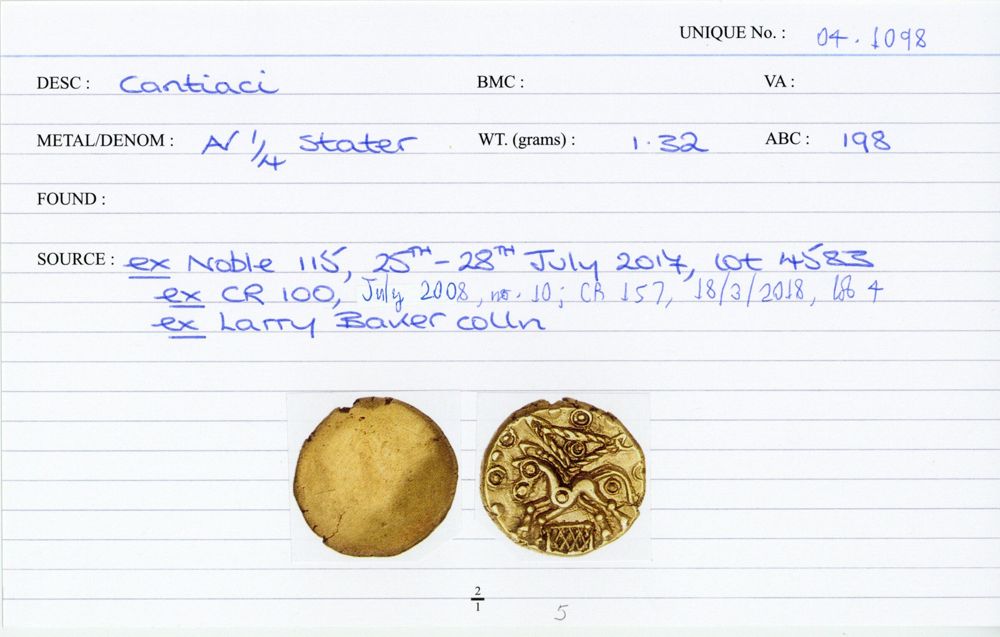 UNIQUE No. : 04.1098
DESC : Cantiaci BMC : VA :
METAL/DENOM : AV 1/4 Stater WT. (grams) : 1.32 ABC : 198
FOUND :
SOURCE : ex Noble 115, 25TH-28TH July 2017, lot 4583
ex CR 100, July 2008, no. 10; CR 157, 18/3/2018, 4
ex Larry Baker colln
2
1
5